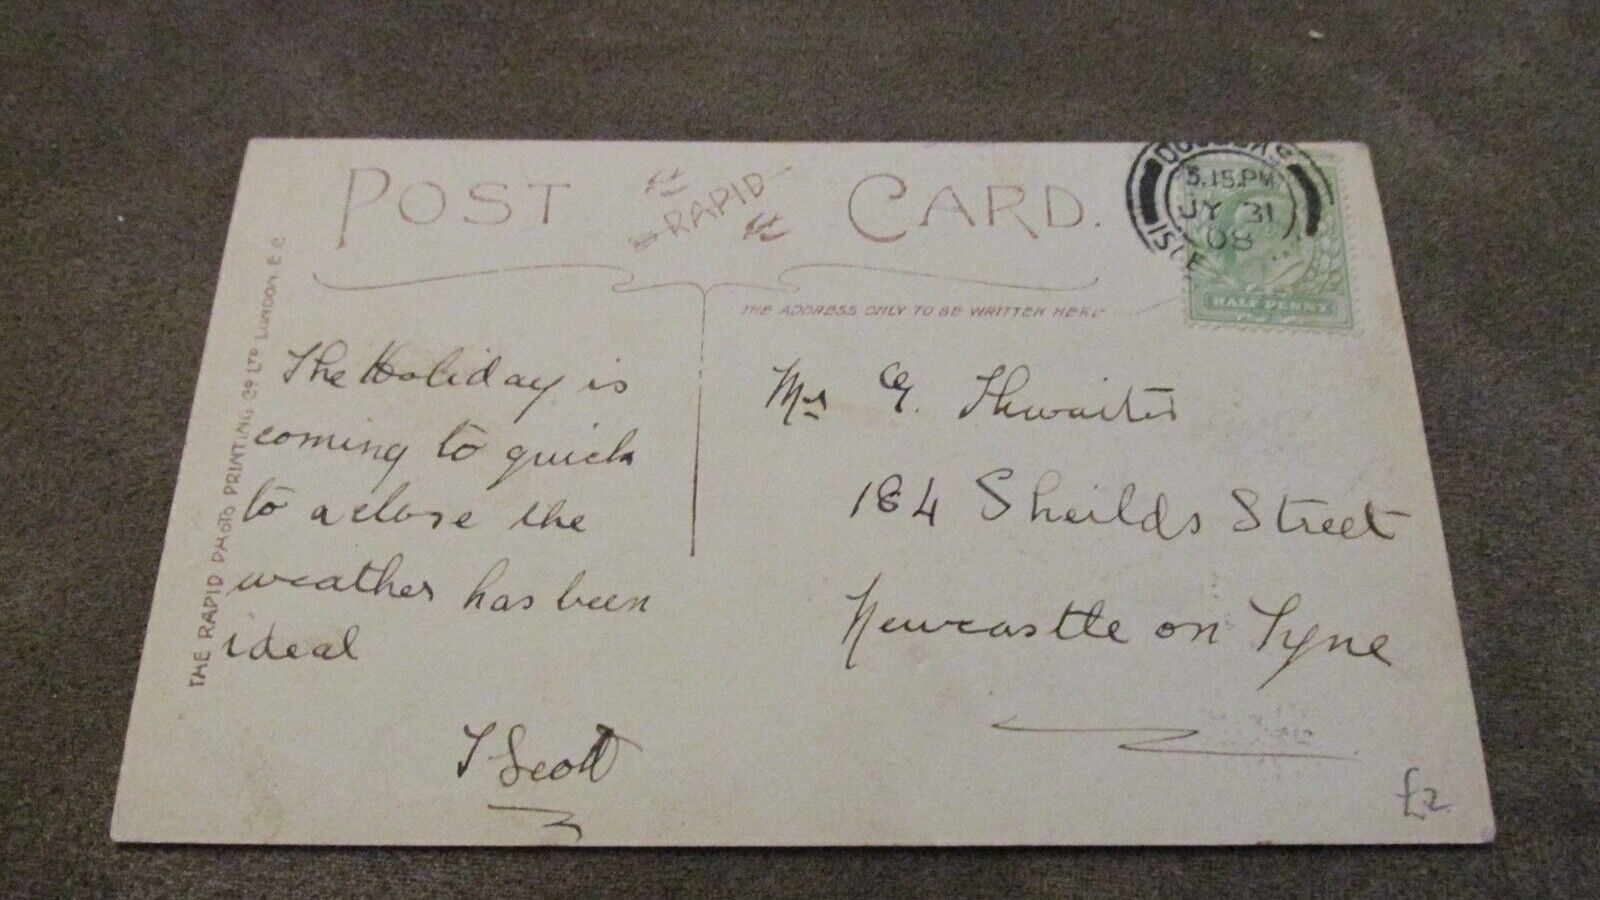 POST RAPID CARD.
THE ADDRESS ONLY TO BE WRITTEN HERE
THE RAPID PHOTO PRINTING CO LTD LONDON. E C.
DOUGLAS
5.15PM
JY 31
08
ISLE
HALF PENNY
The Holiday is
coming to quick
to a close the
weather has been
ideal
T Scott
Mrs G. Thwaites
184 Sheilds Street
Newcastle on Tyne
£2